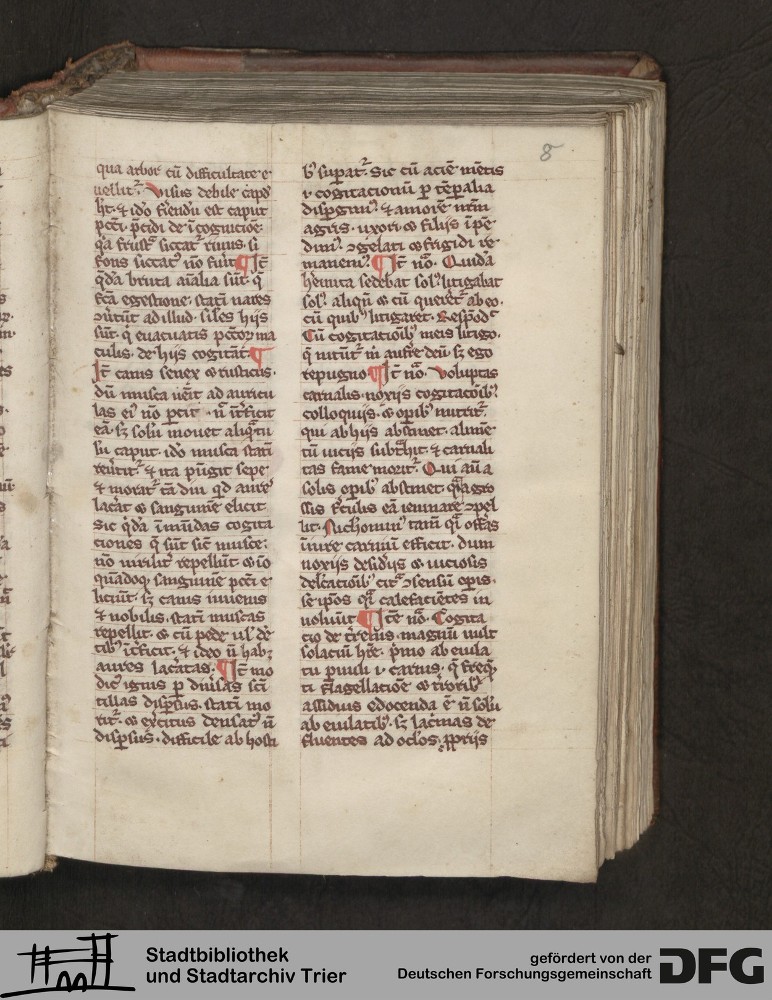 8
qua arbor cū difficultate e
uellit᷑. Visus debile capd̕
lit. & ido
est caput
pctī
de ī cognicioē.
siccat᷑ riuus. si
fons siccat᷑ nō fuit ¶ Itē
qd̄a bruta aīalia sūt. q̄
fcā egestione. statī nares
ad illud. siles hijs
sūt. q̇ euacuatis pctōꝝ ma
culis. de hijs cogitāt. ¶
Itē canis senex & rusticus.
dū musca uēit ad auricu
las ei᷒ nō
. ń īt̄ficit
eā. sꝫ solū mouet aliq̄tu
lū caput. ido musca statī
& ita pūgit sepe
& morat᷑ tā diu qd aure᷒
lac̄at & sanguinē elicit.
Sic qd̄a īmūdas cogita
ciones q̄ sūt sic̄ musce.
nō uirilit̄ repellūt & iō
qn̄doqꝫ sanguinē pctī e
liciūt. sꝫ canis iuuenis
& nobilis. statī muscas
repellit. & cū pede ul̕ dē
tibꝫ īt̄ficit. & ideo ń habꝫ
aures lac̄atas. ¶ Itē mo
dic᷒ ignis ꝑ diūsas sc̄i
tillas disꝑsus. statī mo
rit᷑. & exc̄itus densat᷒ ń
disꝑsus. difficile ab hosti
bꝫ suꝑat᷑. Sic cū aciē mētis
ı cogitacionū ꝑ tēꝑalia
disꝑgim᷒. & amorē nr̄m
agris. uxori & filijs īpē
dim᷒. ↄgelati & frigidi re
manem᷒. ¶ Itē nō. Quidā
heīmita sedebat sol᷒. litigabat
sol᷒. aliq̇s & cū quereret᷑ ab eo.
cū quibꝫ litigaret. Respōdꝫ
Cū cogitacōibꝫ meis litigo.
q̄ nitūt᷑ m̄ aufre deū. sꝫ ego
repugno ¶ Itē nō. Voluptas
carnalis. noxijs cogitacōibꝫ
colloquijs. & oꝑibꝫ nutrit᷑.
qui ab hijs abstinet. alimē
tū uicijs subt̄hit. & carnali
tas fame morit᷑. Qui aūt a
solis oꝑibꝫ abstinet.
ssis
eā ieiunare ↄpel
lit.
tam̄ q̇ offas
carniū efficit. dum
noxijs desid̄ijs & uiciosis
delc̄atiōibꝫ cit᷑ ↄsensū oꝑis.
se ip̄os q̇ calefaciētes in
uoluūt ¶ Itē nō. Cogita
cio de t̄renis. magnū uult
solaciū hr̄e. p̄mo ab euila
tu puuli ı carnis. q̇ freqꝫ
ti flagellacioē &
assiduis edocenda ē ń solū
ab euilatibꝫ. sꝫ lac̄mas de
fluentes ad oc̄los. ꝓprijs
Stadtbibliothek
und Stadtarchiv Trier
gefördert von der
Deutschen Forschungsgemeinschaft
DFG